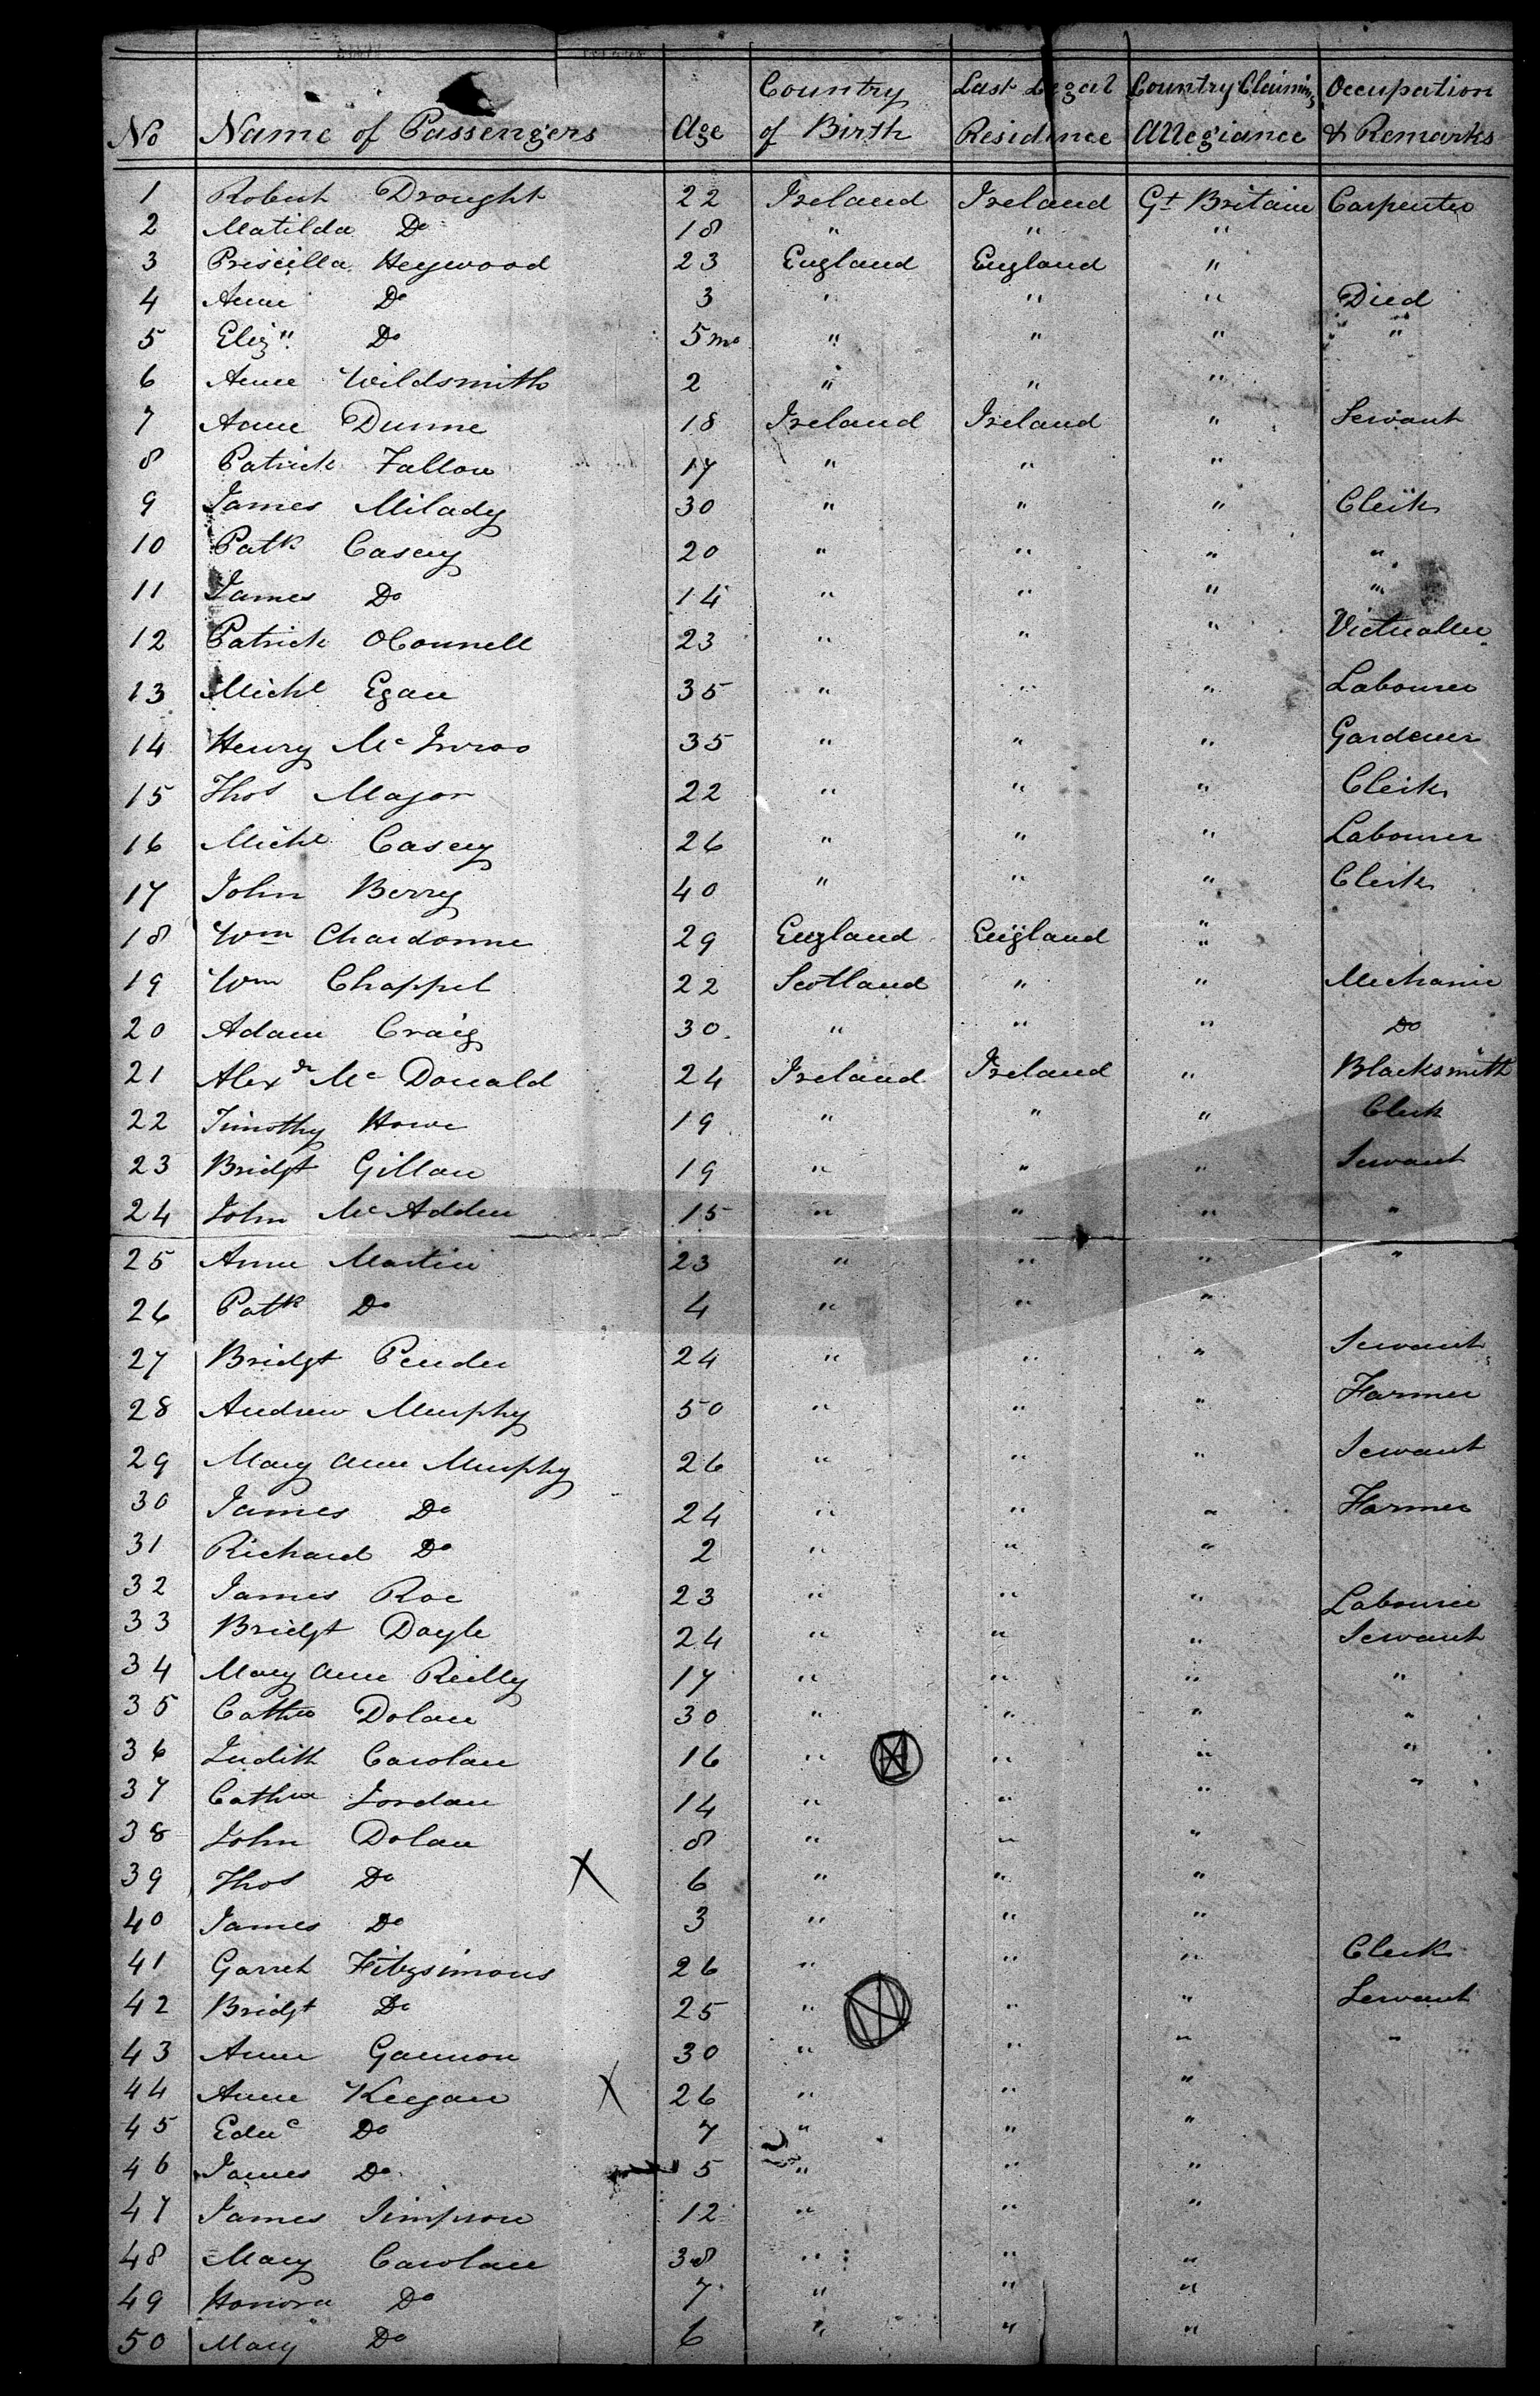 No Name of Passengers Age Country of Birth Last Legal Residence Country Claiming Allegiance Occupation & Remarks
1 Robert Drought 22 Ireland Ireland Gt Britain Carpenter
2 Matilda Do 18 " " "
3 Priscilla Heywood 23 England England "
4 Anne Do 3 " " " Died
5 Eliz" Do 5 mo " " " "
6 Anne Wildsmith 2 " " "
7 Anne Dunne 18 Ireland Ireland " Servant
8 Patrick Fallon 17 " " "
9 James Milady 30 " " " Clerk
10 Patk Casey 20 " " " "
11 James Do 14 " " " "
12 Patrick OConnell 23 " " " Victualler
13 Michl Egan 35 " " " Labourer
14 Henry Mc 35 " " " Gardener
15 Thos Major 22 " " " Clerk
16 Michl Casey 26 " " " Labourer
17 John Berry 40 " " " Clerk
18 Wm Chardonne 29 England England "
19 Wm Chappel 22 Scotland " " Mechanic
20 Adam Craig 30 " " " Do
21 Alexdr Mc Donald 24 Ireland Ireland " Blacksmith
22 Timothy Howe 19 " " " Clerk
23 Bridgt Gillan 19 " " " Servant
24 John Mc Adden 15 " " " "
25 Anne Martin 23 " " " "
26 Patk Do 4 " " "
27 Bridgt Pender 24 " " " Servant
28 Andrew Murphy 50 " " " Farmer
29 Mary Anne Murphy 26 " " " Servant
30 James Do 24 " " " Farmer
31 Richard Do 2 " " "
32 James Roe 23 " " " Labourer
33 Bridgt Doyle 24 " " " Servant
34 Mary Anne Reilly 17 " " " "
35 Cathe Dolan 30 " " " "
36 Judith Carolan 16 " " " "
37 Cathe Jordan 14 " " " "
38 John Dolan 8 " " "
39 Thos Do X 6 " " "
40 James Do 3 " " "
41 Garret Fitzsimons 26 " " " Clerk
42 Bridgt Do 25 " " " Servant
43 Anne Gannon 30 " " " "
44 Anne Keegan X 26 " " "
45 Do 7 " " "
46 James Do 5 " " "
47 James Simpson 12 " " "
48 Mary Carolan 38 " " "
49 Honora Do 7 " " "
50 Mary Do 6 " " "